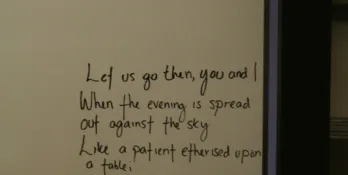 Let us go then, you and I
When the evening is spread
out against the sky
Like a patient etherised upon
a table,